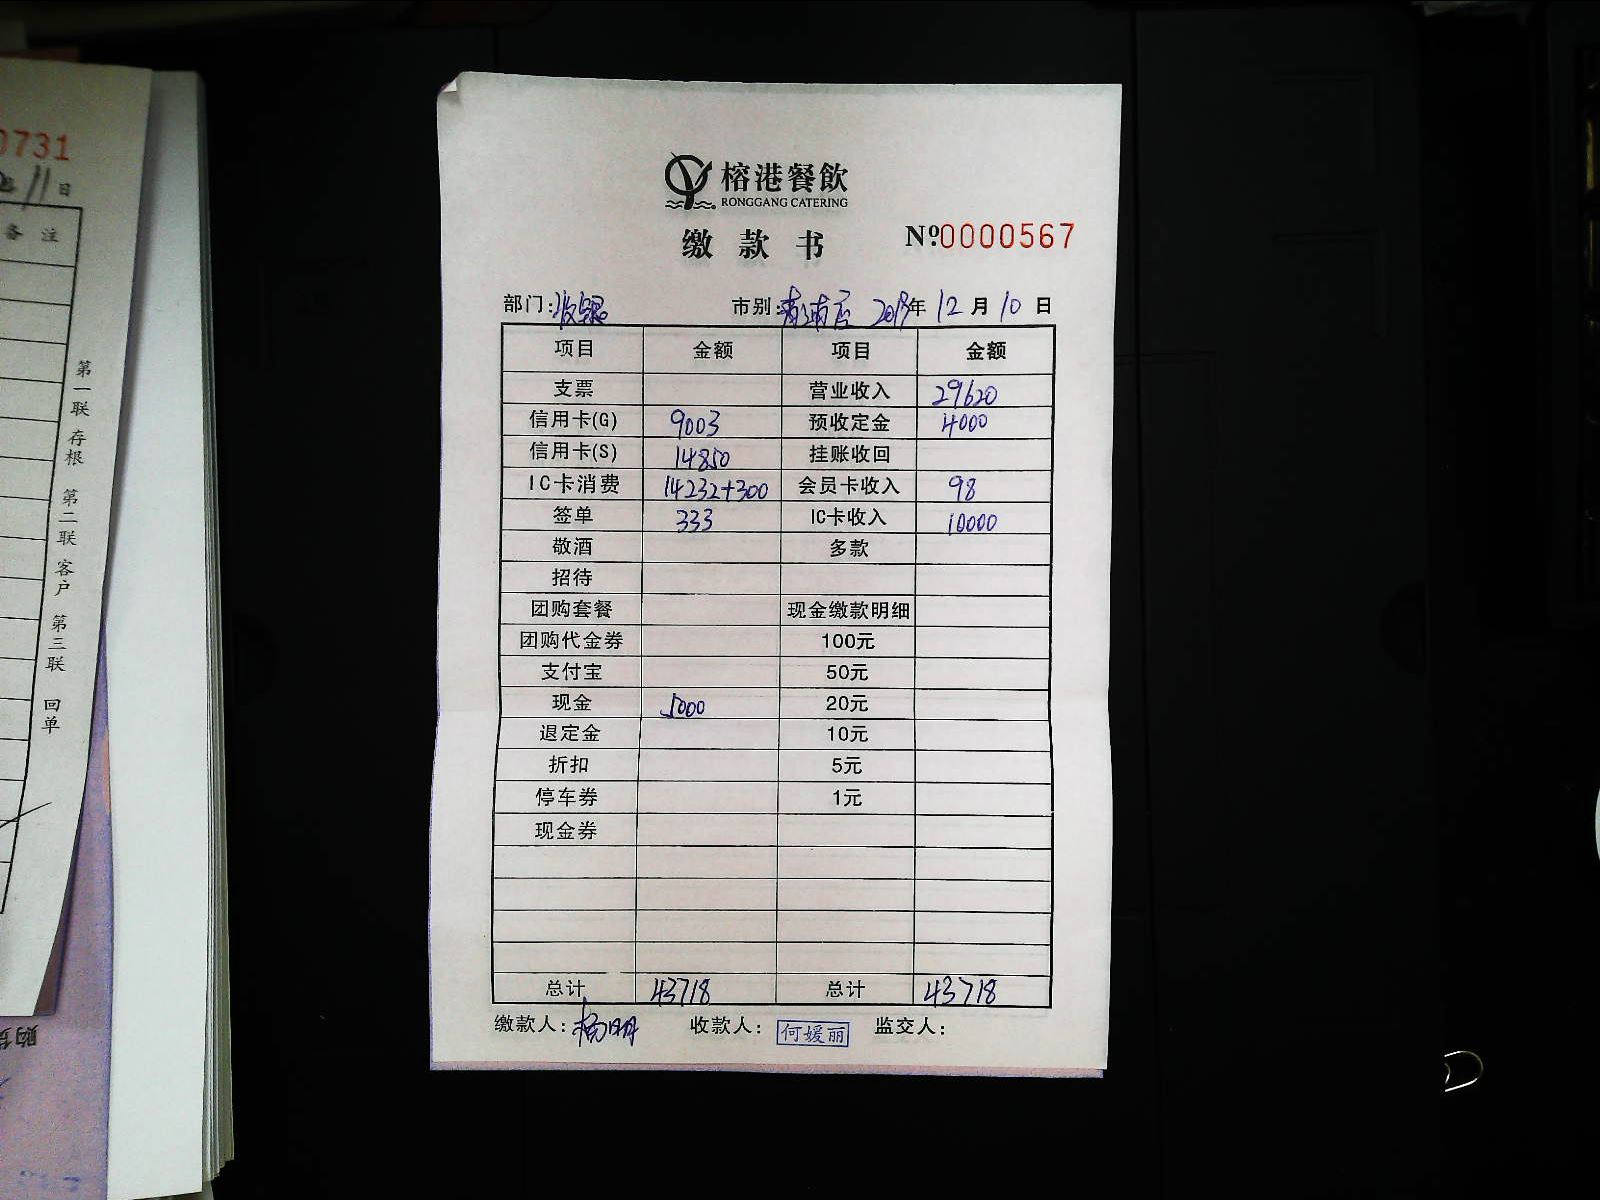 0731
11 日
备 注
第一联 存根 第二联 客户 第三联 回单
榕港餐飲
RONGGANG CATERING
缴 款 书 Nº0000567
部门:收银 市别: 店 年 12 月 10 日
项目 金额 项目 金额
支票 营业收入 29620
信用卡(G) 9003 预收定金 4000
信用卡(S) 14850 挂账收回
IC卡消费 14232+300 会员卡收入 98
签单 333 IC卡收入 10000
敬酒 多款
招待
团购套餐 现金缴款明细
团购代金券 100元
支付宝 50元
现金 5000 20元
退定金 10元
折扣 5元
停车券 1元
现金券
总计 43718 总计 43718
缴款人: 杨明 收款人: 何媛丽 监交人: